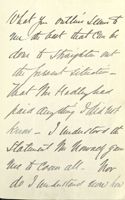 What you outline seems to
me the best that can be
done to straighten out
the present situation —
that Mr Hadley has
paid anything I did not
know — I understood the
Statement Mr
me to cover all. Nor
do I understand now how